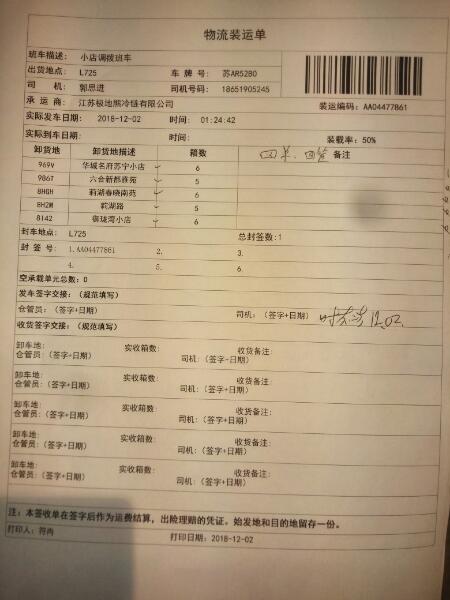 物流装运单
班车描述: 小店调拨班车
出货地点: L725 车 牌 号: 苏AR5280
司 机: 郭思进 司机号码: 18651905245
承 运 商: 江苏极地熊冷链有限公司 装运编码: AA04477861
实际发车日期: 2018-12-02 时间: 01:24:42
实际到车日期: 时间: 装载率: 50%
卸货地 卸货地描述 箱数 回单、回签 备注
969V 华城名府苏宁小店 6
9867 六合新都雅苑 5
8H6H 莉湖春晓南苑 6
8H2W 乾湖路 5
8142 御珑湾小店 6
封车地点: L725 总封签数:1
封 签 号: 1.AA04477861 2. 3.
4. 5. 6.
空承载单元总数: 0
发车签字交接: (规范填写)
仓管员: (签字+日期) 司机: (签字+日期) 12.02.
收货签字交接: (规范填写)
卸车地: 实收箱数: 收货备注:
仓管员: (签字+日期) 司机: (签字+日期)
卸车地: 实收箱数: 收货备注:
仓管员: (签字+日期) 司机: (签字+日期)
卸车地: 实收箱数: 收货备注:
仓管员: (签字+日期) 司机: (签字+日期)
卸车地: 实收箱数: 收货备注:
仓管员: (签字+日期) 司机: (签字+日期)
卸车地: 实收箱数: 收货备注:
仓管员: (签字+日期) 司机: (签字+日期)
注: 本签收单在签字后作为运费结算, 出险理赔的凭证。始发地和目的地留存一份。
打印人: 符冉 打印日期: 2018-12-02